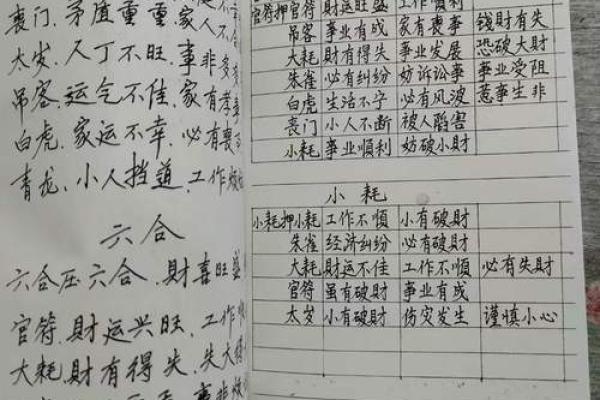 丧门、矛盾重重、家
太岁、人丁不旺、事非
吊客、运气不佳、家有孝事
白虎、家运不幸、必有丧
青龙、小人挡道、工作烦
六合
六合压六合、財喜旺盛
官符、財运兴旺、工作
大耗、財有得失、失大
官符押官符 財运旺盛 工作順利
吊客 事业有成 家有喪事 钱財有失
大耗 財有得失 事业发展 恐破大財
朱雀 必有纠纷 妨诉讼事 事业受阻
白虎 生活不宁 必有风波 惹事生非
喪门 小人不断 被人陷害
小耗 事业順利 妨破小財
小耗
小耗押小耗 工作不順 小有破財
朱雀 经济纠纷 必有破財
大耗 財运不佳 工作不順 必有失財
官符 虽有破財 事业有成
太岁 小有破財 伤灾发生 谨慎小心